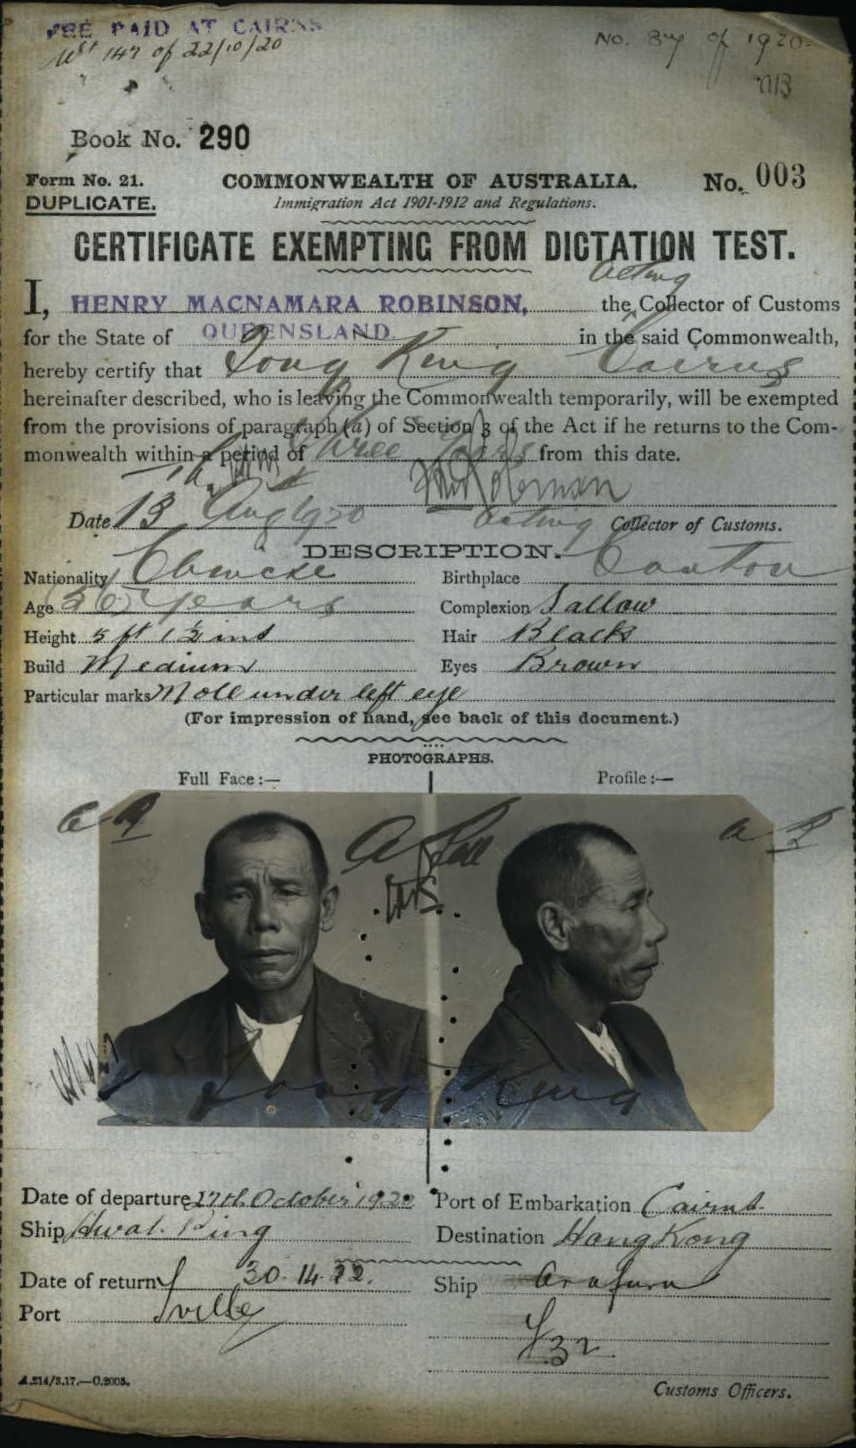 FEE PAID AT CAIRNS
No. 37 of 1920
147 of 22/10/20
Book No. 290
Form No. 21.
COMMONWEALTH OF AUSTRALIA.
No. 003
DUPLICATE.
Immigration Act 1901-1912 and Regulations.
CERTIFICATE EXEMPTING FROM DICTATION TEST.
acting
I, HENRY MACNAMARA ROBINSON, the Collector of Customs
for the State of QUEENSLAND. in the said Commonwealth,
hereby certify that Tong King Cairns
hereinafter described, who is leaving the Commonwealth temporarily, will be exempted
from the provisions of paragraph (a) of Section 3 of the Act if he returns to the Com-
monwealth within a period of Three Years from this date.
Date 13 Aug 1920 Acting Collector of Customs.
DESCRIPTION.
Nationality Chinese Birthplace Canton
Age 56 years Complexion Sallow
Height 5 ft 1½ ins Hair Black
Build Medium Eyes Brown
Particular marks Mole under left eye
(For impression of hand, see back of this document.)
PHOTOGRAPHS.
Full Face :— Profile :—
Tong King
Date of departure 27th October 1920 Port of Embarkation Cairns
Ship Hwah Ping Destination Hang Kong
Date of return 30. 14. 22. Ship Arafura
Port Tville
A.214/3.17.—C.2003.
Customs Officers.